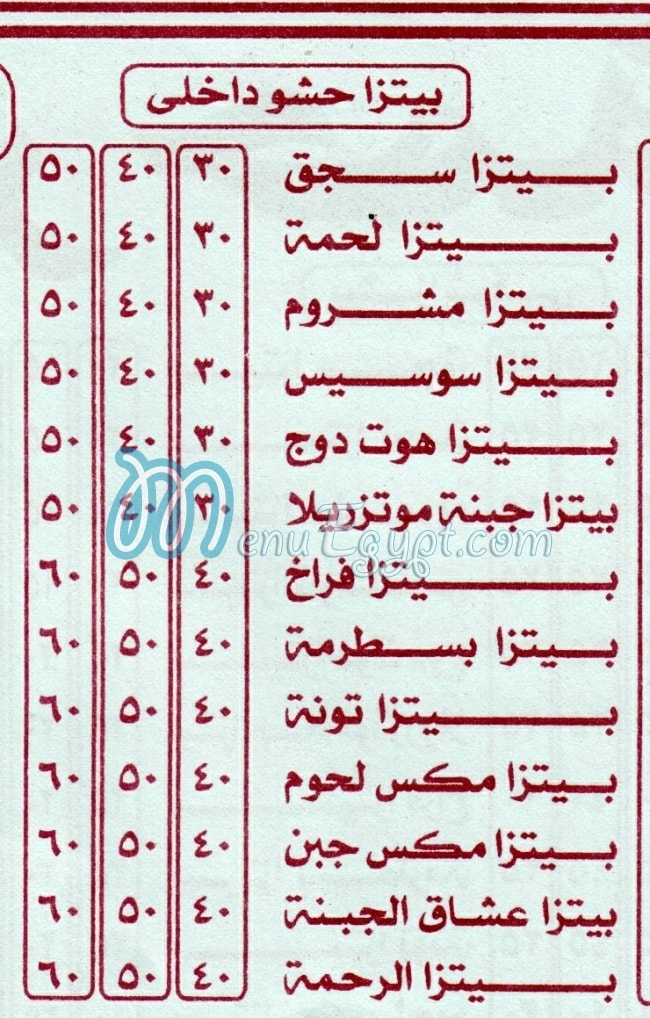 بيتزا حشو داخلى
بيتزا سجق ٣٠ ٤٠ ٥٠
بيتزا لحمة ٣٠ ٤٠ ٥٠
بيتزا مشروم ٣٠ ٤٠ ٥٠
بيتزا سوسيس ٣٠ ٤٠ ٥٠
بيتزا هوت دوج ٣٠ ٤٠ ٥٠
بيتزا جبنة موتزريلا ٣٠ ٤٠ ٥٠
MenuEgypt.com
بيتزا فراخ ٤٠ ٥٠ ٦٠
بيتزا بسطرمة ٤٠ ٥٠ ٦٠
بيتزا تونة ٤٠ ٥٠ ٦٠
بيتزا مكس لحوم ٤٠ ٥٠ ٦٠
بيتزا مكس جبن ٤٠ ٥٠ ٦٠
بيتزا عشاق الجبنة ٤٠ ٥٠ ٦٠
بيتزا الرحمة ٤٠ ٥٠ ٦٠